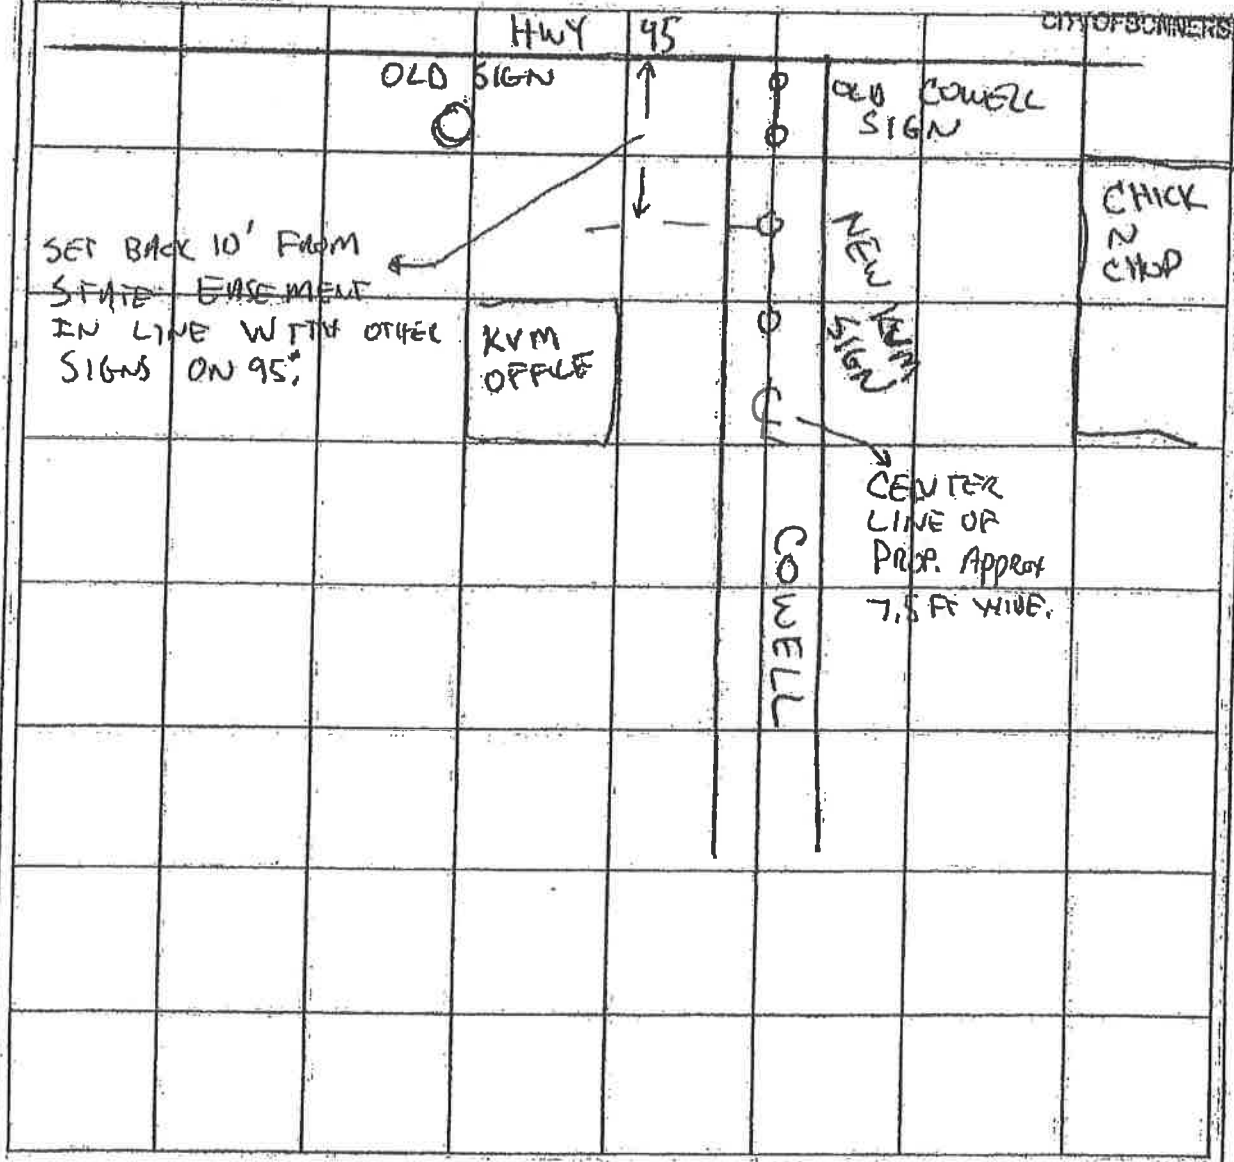 CITY OF BONNERS
HWY 95
OLD SIGN
OLD COWELL
SIGN
CHICK
N
CHOP
SET BACK 10' FROM
STATE EASEMENT
IN LINE WITH OTHER
SIGNS ON 95.
NEW KVM
SIGN
KVM
OFFICE
CENTER
LINE OF
PROP. APPROX
7.5 FT WIDE.
COWELL